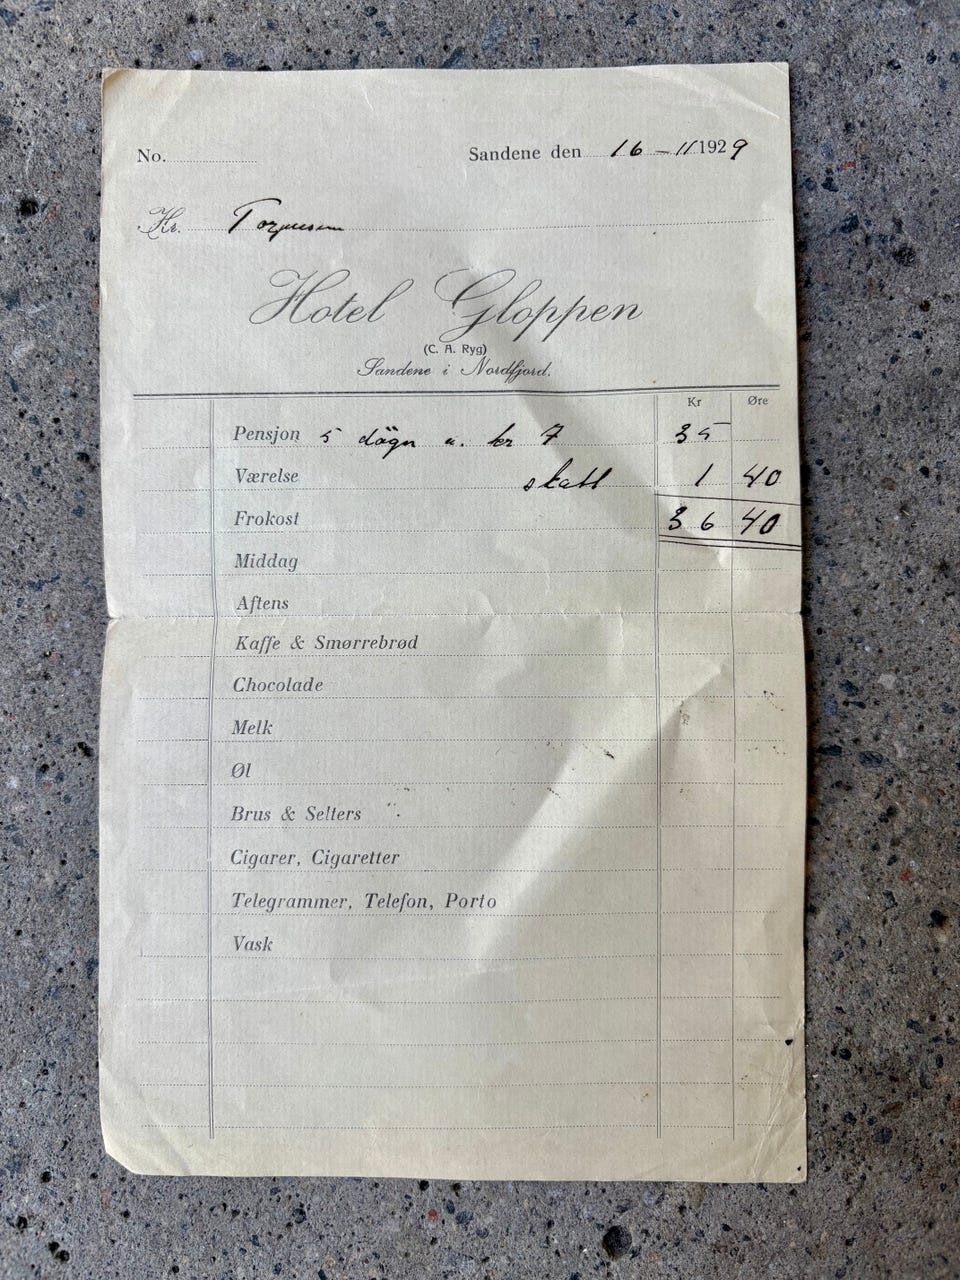 No.
Sandene den 16-11 1929
Hr.
Hotel Gloppen
(C. A. Ryg)
Sandene i Nordfjord.
Kr Øre
Pensjon 5 døgn a. kr 7 35
Værelse skatt 1 40
Frokost 36 40
Middag
Aftens
Kaffe & Smørrebrød
Chocolade
Melk
Øl
Brus & Selters
Cigarer, Cigaretter
Telegrammer, Telefon, Porto
Vask